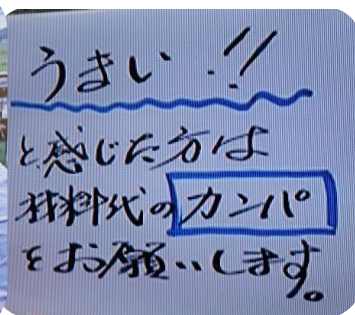 うまい!!
と感じた方は
材料代のカンパ
をお願いします。